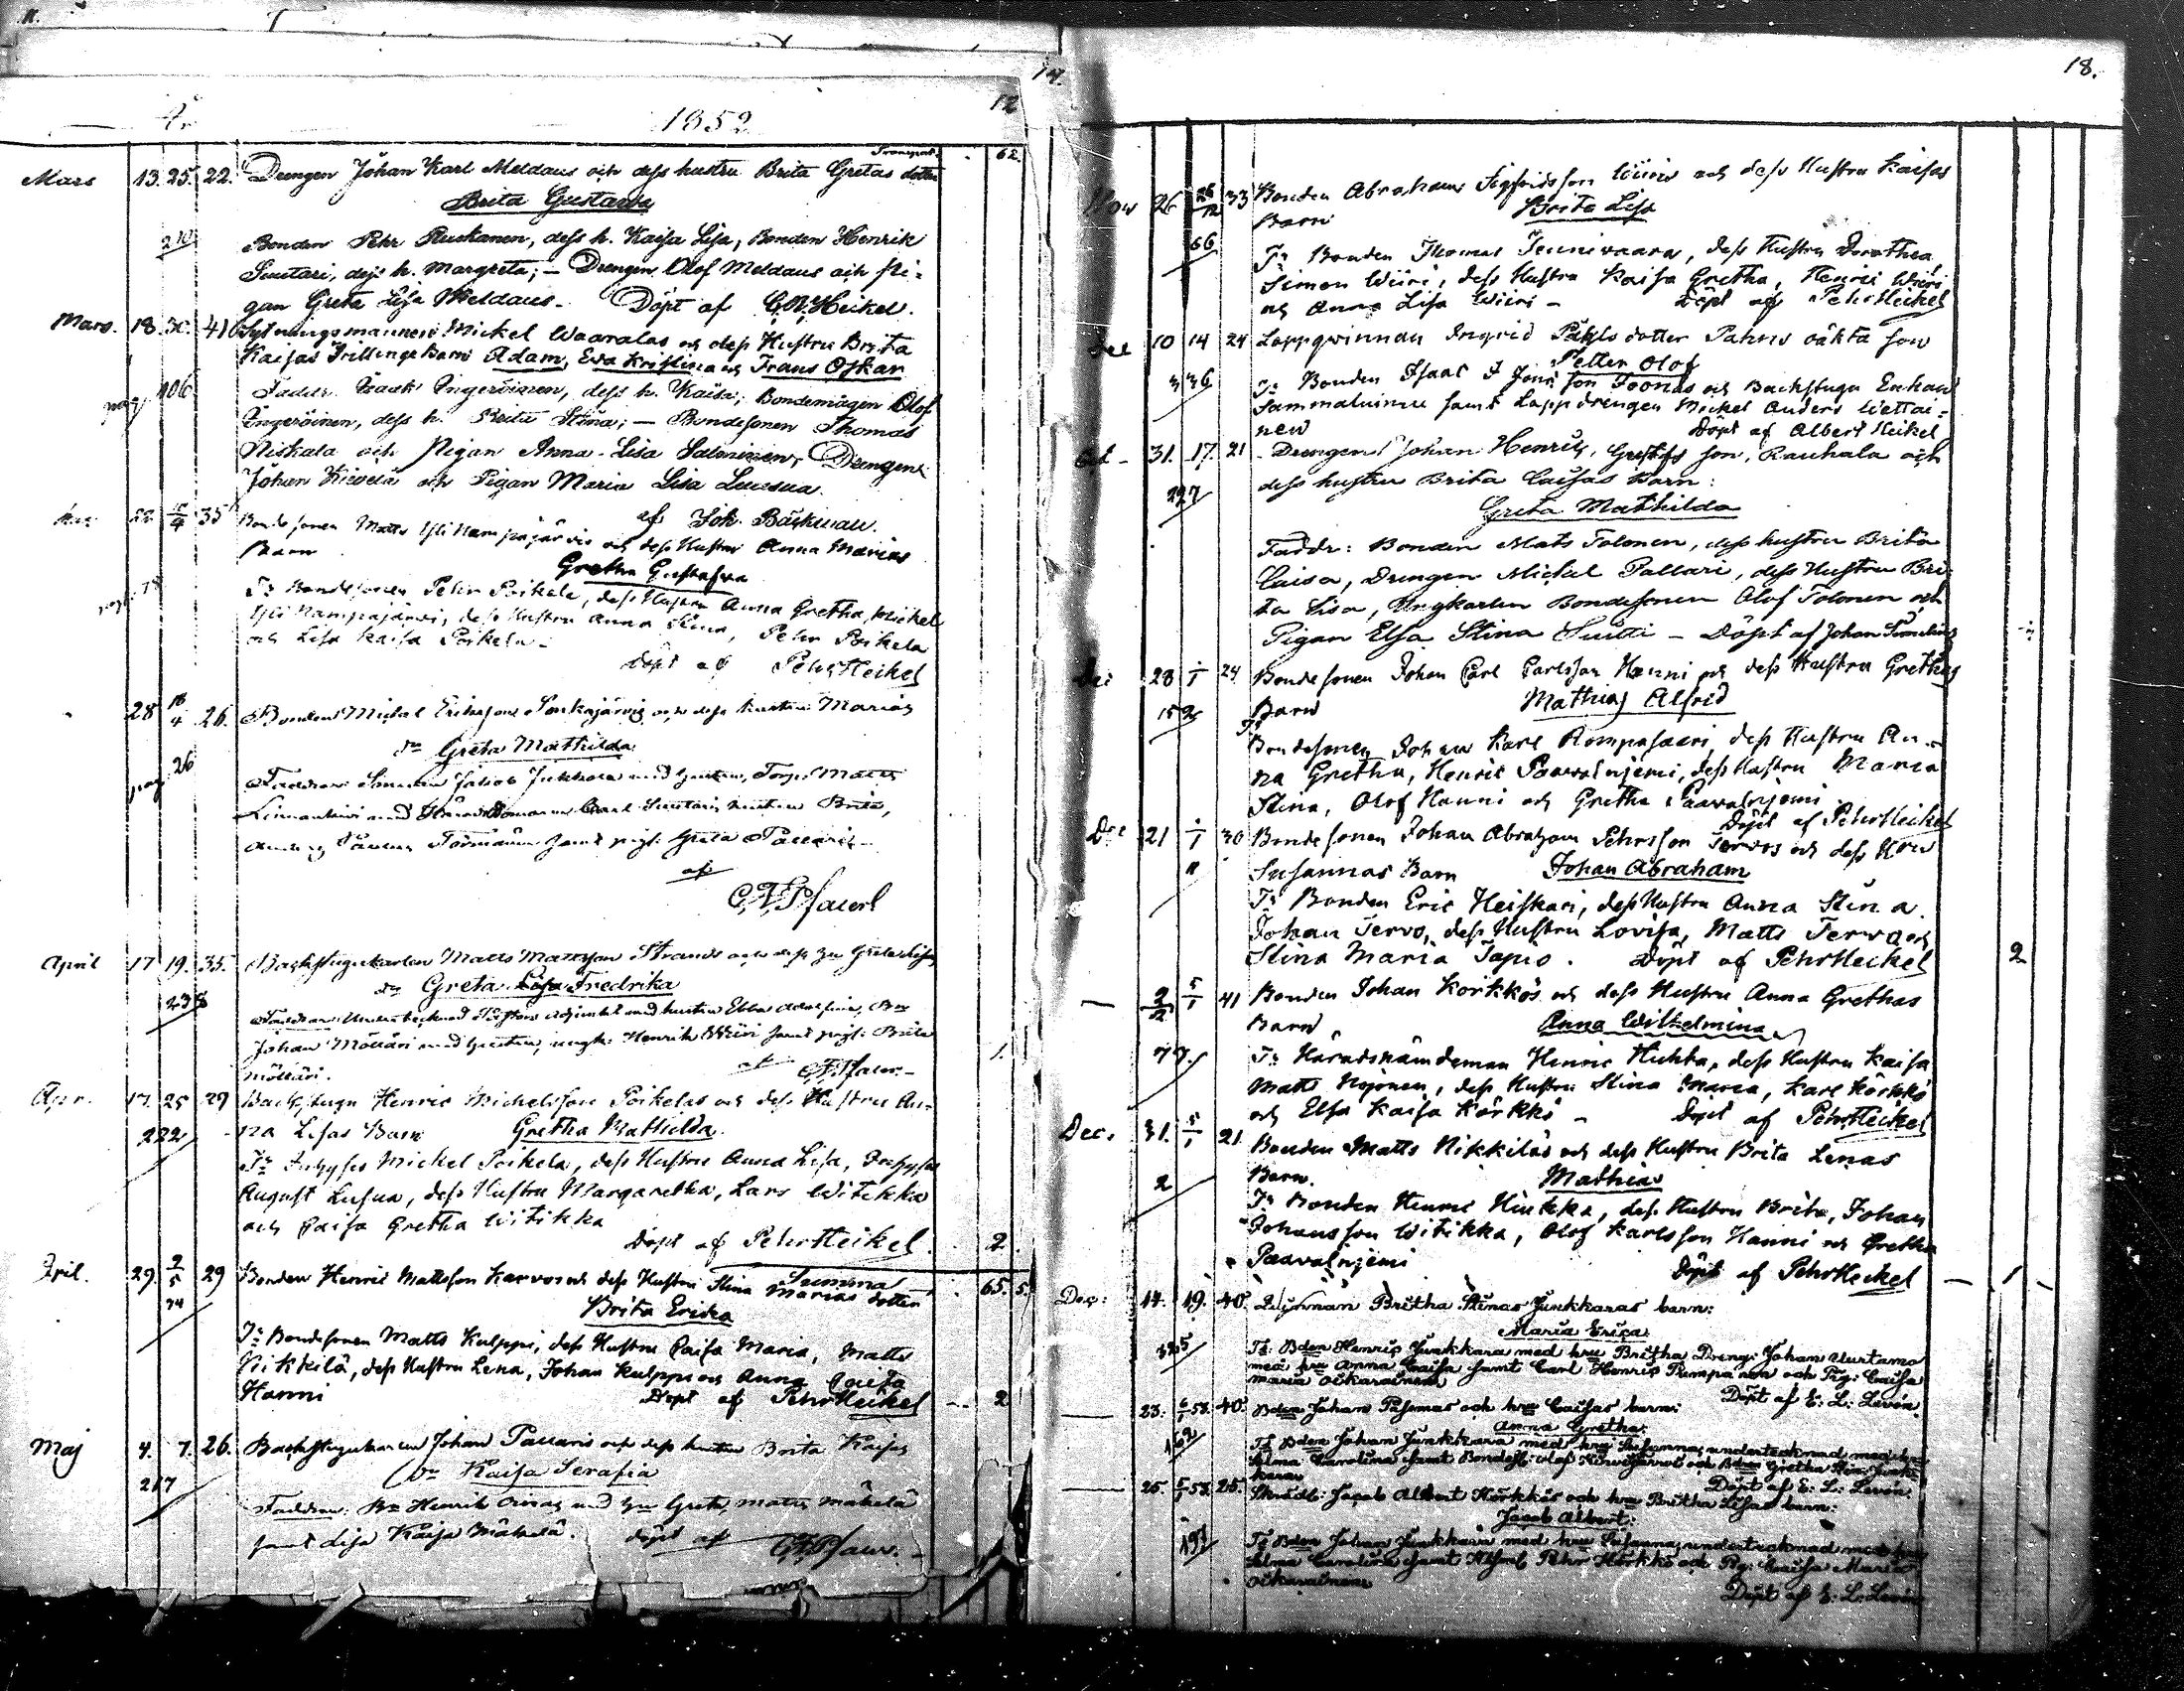 11.
17.
År 1852 12
Transport. 62.
Mars 13. 25. 22. Drengen Johan Karl Meldaus och dess hustru Brita Gretas dotter
Brita Gustava
210 Bonden Pehr Ruskanen, dess h. Kaisa Lisa, Bonden Henrik
Suutari, dess h. Margreta; – Drengen Olof Meldaus och Pi-
gan Greta Lisa Meldaus. Döpt af C. N. Heikel.
Mars. 18. 30. 41 Sytningsmannen Mickel Waaralas och dess Hustru Brita
Kaisas Trillinge Barn Adam, Eva Kristina och Frans Oskar
pag. 106 Faddr. Isack Ingeröinen, dess h. Kaisa; Bondemågen Olof
Ingeröinen, dess h. Brita Stina; – Bondesonen Thomas
Niskala och Pigan Anna Lisa Salminen, Drengen
Johan Kivelä och Pigan Maria Lisa Luusua.
af Joh. Bäckman.
35 Bondesonen Matts Yli Nampajärvis och dess Hustru Anna Marias
Barn Gretha Gustafva
Fr Bondesonen Pehr Poikela, dess Hustru Anna Gretha, Mickel
Yli Nampajärvi, dess Hustru Anna Stina, Pehr Poikela
och Lisa Kaisa Poikela.
Döpt af Pehr Heikel
28 26. Bonden Michel Ericksson och dess hustru Marias
dr Greta Mathilda
pag. 26 Faddrar: Jakob Junkkara med hustru, Torp. Matts
Carl Suutari, hustru Brita,
samt pig. Greta
af
April 17 19. 35. Backstugukarlen Matts Mattsson Strands och dess hu Greta Lisas
dr Greta Lisa Fredrika
238 Faddrar: Undertecknad med hustru Ebba Adolfina, Bn
Johan Mölläri med hustru, ungk. Henrik Wiiri samt pig. Brita
Mölläri. af 1.
Apr. 17. 25 29 Backstugu Henric Michelsson Poikelas och dess Hustru An-
222 na Lisas Barn Gretha Mathilda.
Fr Inhyses Mickel Poikela, dess Hustru Anna Lisa, Inhyses
August Lusua, dess Hustru Margaretha, Lars Witikka
och Caisa Gretha Witikka
Döpt af Pehr Heikel. 2.
Summa 65. 5.
April. 29. 2/5 29 Bonden Henric Mattsson Karvos och dess Hustru Stina Marias dotter
Brita Erica
Fr Bondesonen Matts Kulppi, dess Hustru Caisa Maria, Matts
Nikkilä, dess Hustru Lena, Johan Kulppi och Anna Caisa
Hanni Döpt af Pehr Heikel 2
Maj 4. 7. 26. Backstugukarlen Johan Pallaris och dess hustru Brita Kaisas
dr Kaisa Serafia
217 Faddrar: Bn Henrik med hu Greta, Matts Mäkelä
samt Lisa Kaisa Mäkelä. döpt af
18.
Nov 26 26/12 33 Bonden Abraham Sigfridsson Wiiris och dess Hustru Kaisas
Barn Brita Lisa
66 Fr Bonden Thomas Jeunivaara, dess Hustru Dorothea
Simon Wiiri, dess Hustru Kaisa Gretha, Henric Wiiri
och Anna Lisa Wiiri – Döpt af Pehr Heikel
Dec 10 14 24 Lappqvinnan Ingrid Påhls dotter oäkta son
Petter Olof
336 Fr Bonden Isaac I Jonsson Toonas och Backstugu Enkan
Sammaluimu samt Lappdrengen Mickel Anders Wettai-
nen Döpt af Albert Heikel
31. 17. 21 Drengen Johan Henric, Gustafs son, Rauhala och
227 dess hustru Brita Caisas Barn:
Greta Mathilda
Faddr: Bonden Mats Tolonen, dess hustru Brita
Caisa, Drengen Michal Pallari, dess Hustru Bri-
ta Lisa, Ungkarlen Bondesonen Olof Tolonen och
Pigan Elsa Stina Suitti – Döpt af Johan
Dec 28 24 Bondesonen Johan Carl Carlsson Hanni och dess Hustru Grethas
152 Barn Mathias Alfrid
Fr
Bondesonen Johan Karl Rompasaari, dess Hustru An-
na Gretha, Henric Paavalniemi, dess Hustru Maria
Stina, Olof Hanni och Gretha Paavalniemi
Döpt af Pehr Heikel
Dec 21 30 Bondesonen Johan Abraham Pehrsson Tervos och dess Hru
Susannas Barn Johan Abraham
Fr Bonden Eric Heiskari, dess Hustru Anna Stina.
Johan Tervo, dess Hustru Lovisa, Matts Tervo och
Stina Maria Tapio. Döpt af Pehr Heikel 2
— 2/12 5/1 41 Bonden Johan Korkkos och dess Hustru Anna Grethas
Barn Anna Wilhelmina
77. Fr Häradsnämdeman Henric Huhta, dess Hustru Kaisa
Matts Hyönen, dess Hustru Stina Maria, Karl Körkkö
och Elsa Kaisa Körkkö – Döpt af Pehr Heikel
Dec. 31. 5/1 21 Bonden Matts Nikkiläs och dess Hustru Brita Lenas
2 Barn. Mathias
Fr Bonden Henric Hiukka, dess Hustru Brita, Johan
Johansson Witikka, Olof Karlsson Hanni och Gretha
Paavalniemi Döpt af Pehr Heikel — 1 —
Dec: 14. 19. 40. Britha Stinas Junkkaras barn:
Maria Erica:
Ts: Bden Henric Junkkara med hru Britha Dreng: Johan Aurtamo
med hru Anna Caisa samt Carl Henric Pumpanen och Pig: Caisa
Maria Oikarainen Döpt af E: L: Levón.
— 23. 6/1 53. 40. Bden Johan Pasmas och hru Caisas barn:
Anna Gretha:
162 Ts Bden Johan Junkkara med hru Susanna, undertecknad med hru
Selma Carolina samt Bondes: Olof och Bden Gretha Junk-
kara Döpt af E: L: Levón.
— 25. 6/1 53. 25. Skrädd: Jacob Albert Körkkös och hru Britha Lisas barn:
Jacob Albert:
Ts Bden Johan Junkkara med hru Susanna, undertecknad med hru
Selma Carolina samt Pehr Körkkö och Pig: Caisa Maria
Oikarainen
Döpt af E: L: Levón